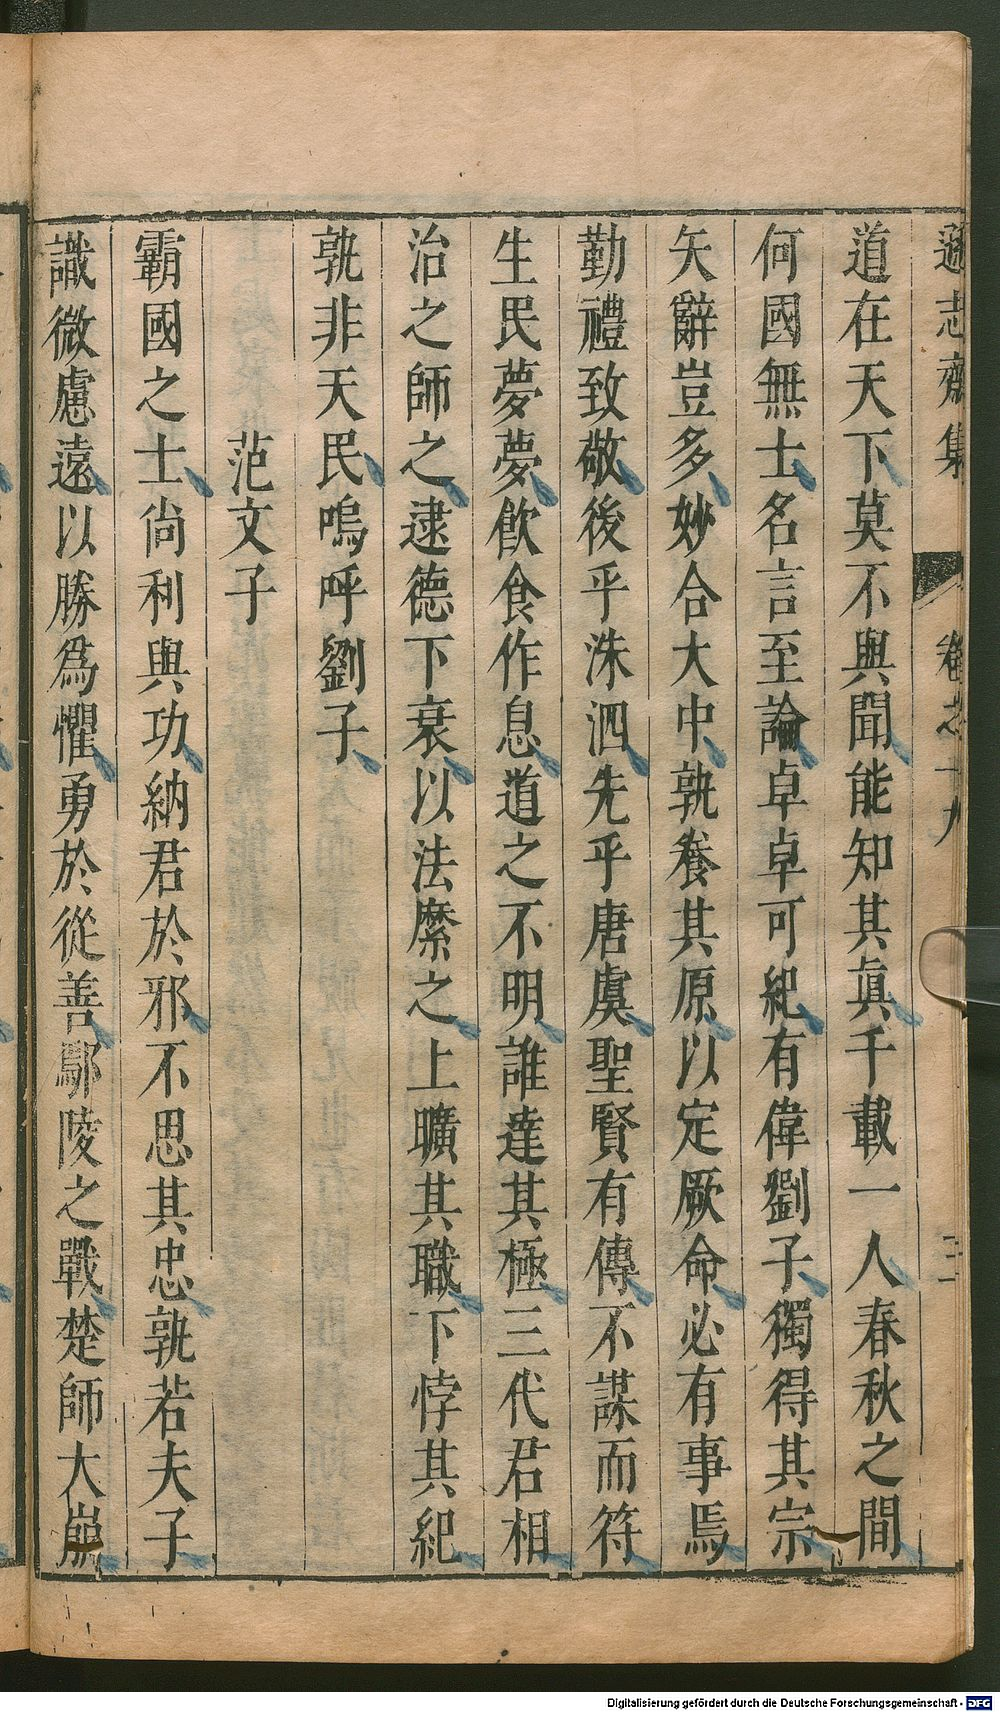 遜志齋集 卷之十九 三
道在天下莫不與聞能知其眞千載一人春秋之間
何國無士名言至論卓卓可紀有偉劉子獨得其宗
矢辭豈多妙合大中孰養其原以定厥命必有事焉
勤禮致敬後乎洙泗先乎唐虞聖賢有傳不謀而符
生民夢夢飮食作息道之不明誰達其極三代君相
治之師之逮德下衰以法縻之上曠其職下悖其紀
孰非天民嗚呼劉子
范文子
霸國之士尙利與功納君於邪不思其忠孰若夫子
識微慮遠以勝爲懼勇於從善鄢陵之戰楚師大崩
Digitalisierung gefördert durch die Deutsche Forschungsgemeinschaft - DFG